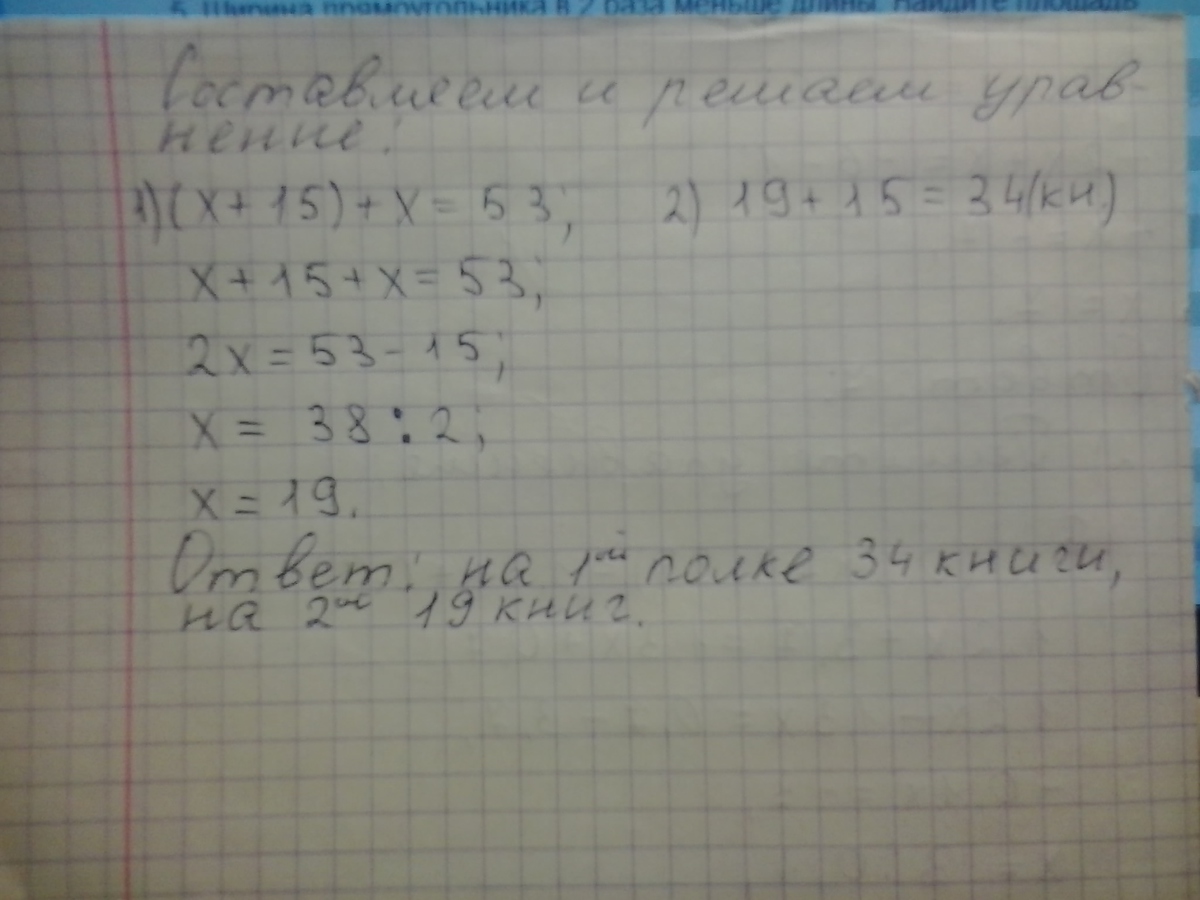 5. Ширина прямоугольника в 2 раза меньше длины. Найдите площадь
Составляем и решаем урав-
нение:
1) (x + 15) + x = 53; 2) 19 + 15 = 34 (кн.)
x + 15 + x = 53;
2x = 53 - 15;
x = 38 : 2;
x = 19.
Ответ: на 1ой полке 34 книги,
на 2ой 19 книг.